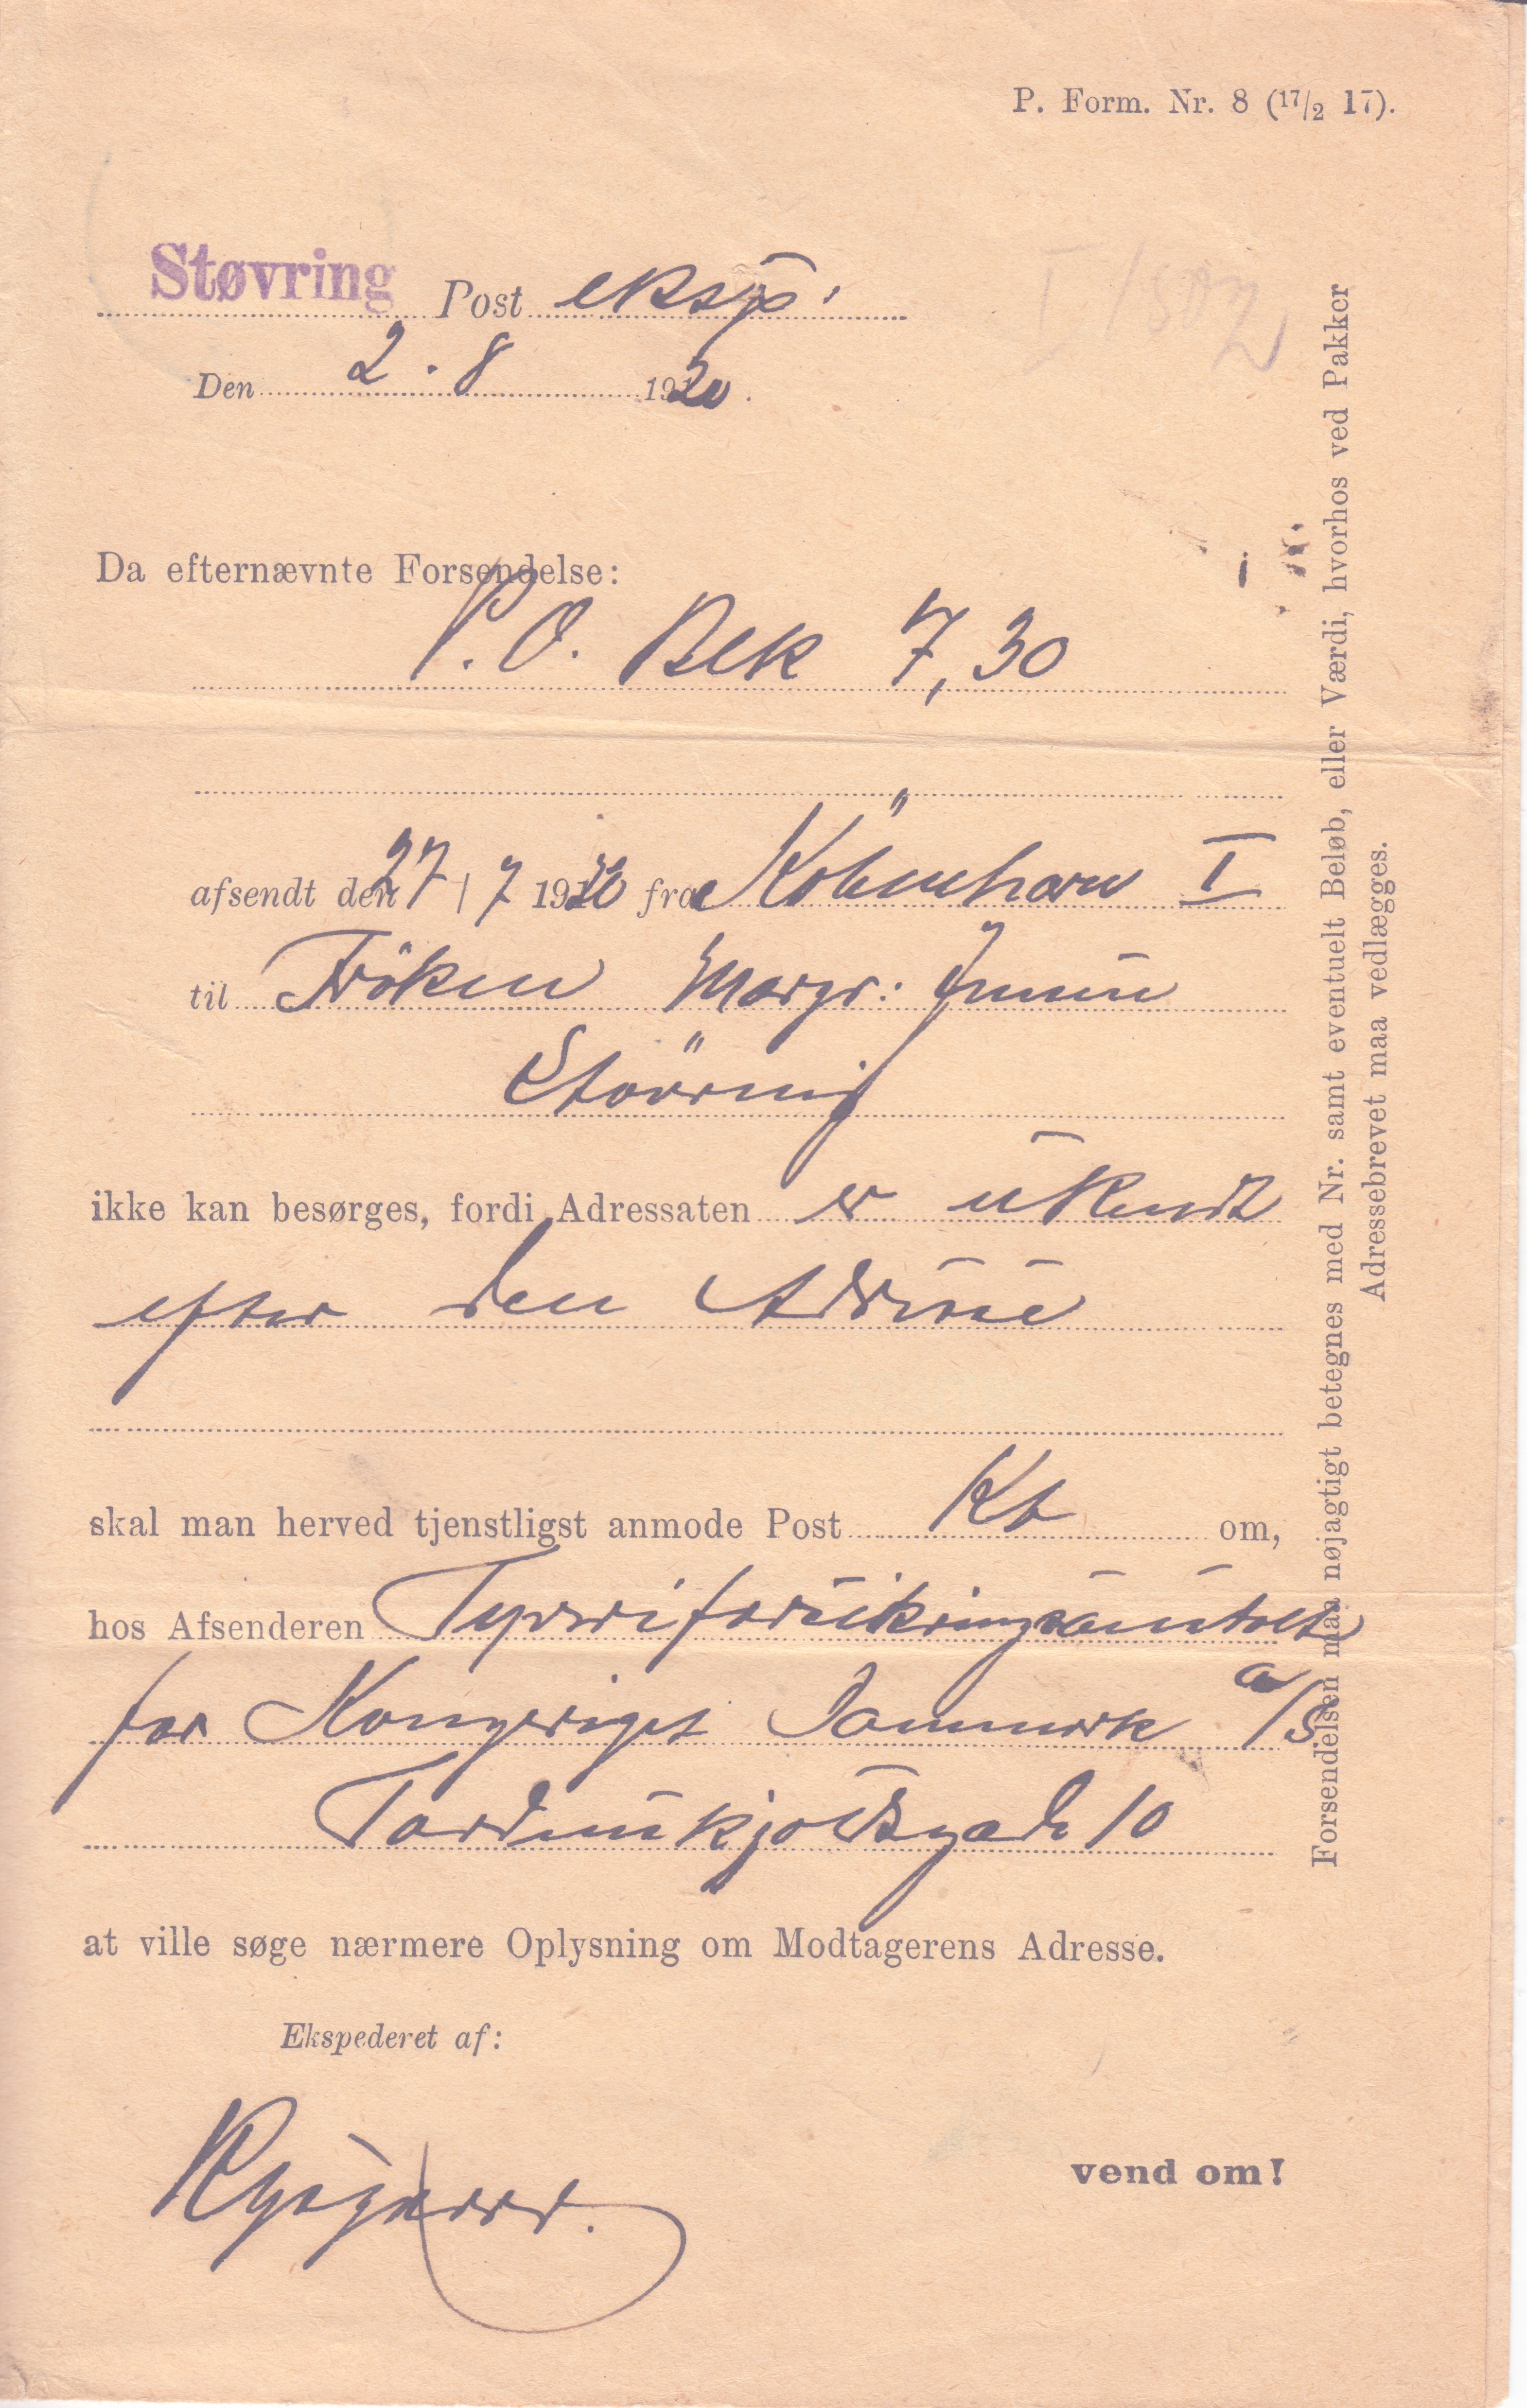 P. Form. Nr. 8 (17/2 17).
Støvring Post eksp.
Den 2. 8 1920.
Da efternævnte Forsendelse:
P.O. Bek 7,30
afsendt den 27/7 1920 fra København I
til Frøken Margr: Jensen
Støvring
ikke kan besørges, fordi Adressaten er ukendt
efter den Adresse
skal man herved tjenstligst anmode Post Kb om,
hos Afsenderen Tyveriforsikringsanstalt
for Kongeriget Danmark A/S
Tordenskjoldsgade 10
at ville søge nærmere Oplysning om Modtagerens Adresse.
Ekspederet af:
vend om!
Forsendelsen maa nøjagtigt betegnes med Nr. samt eventuelt Beløb, eller Værdi, hvorhos ved Pakker
Adressebrevet maa vedlægges.